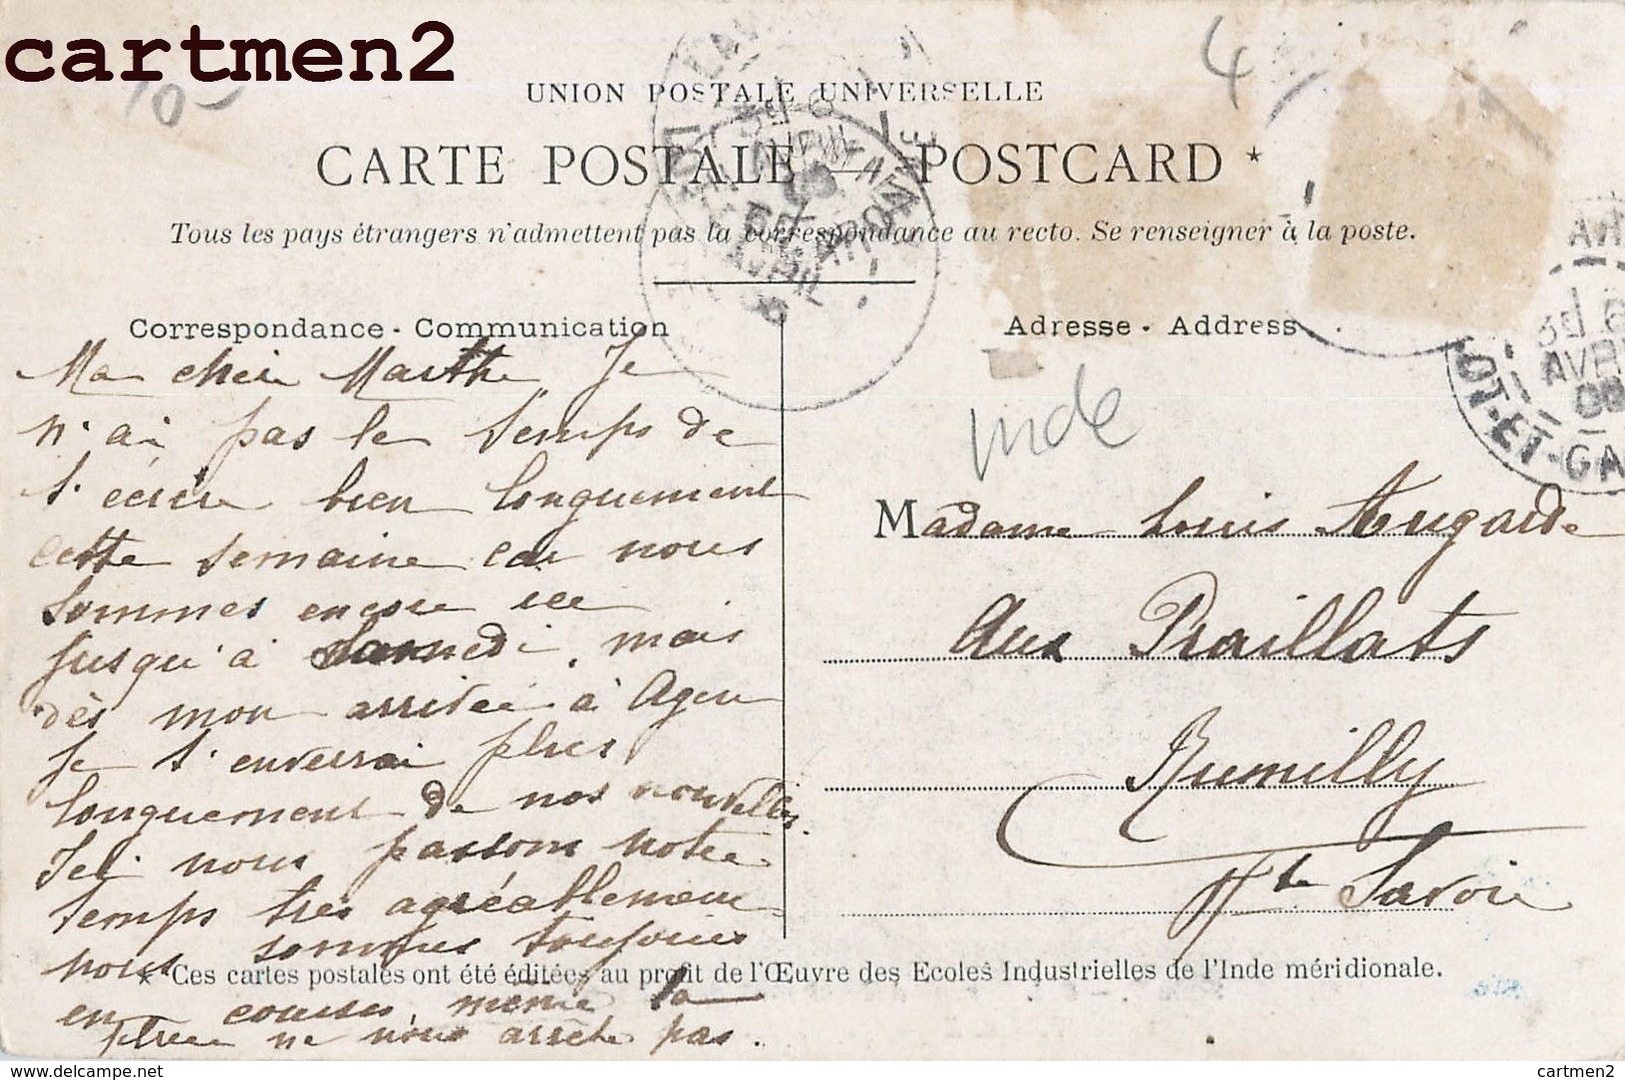 cartmen2
10-
4
UNION POSTALE UNIVERSELLE
CARTE POSTALE — POSTCARD *
Tous les pays étrangers n'admettent pas la correspondance au recto. Se renseigner à la poste.
Correspondance - Communication
Ma chère Marthe Je
n'ai pas le temps de
t'écrire bien longuement
cette semaine car nous
sommes encore ici
jusqu'à samedi, mais
dès mon arrivée à Agen
je t'enverrai plus
longuement de nos nouvelles.
Ici nous passons notre
temps très agréablement
nous sommes toujours
en courses même la
pluie ne nous arrête pas.
Adresse - Address
Inde
Madame Louis Augarde
Aux Praillats
Rumilly
Hte Savoie
3E / 6
AVRIL
06
LOT-ET-GA
* Ces cartes postales ont été éditées au profit de l'Œuvre des Ecoles Industrielles de l'Inde méridionale.
delcampe.net
cartmen2